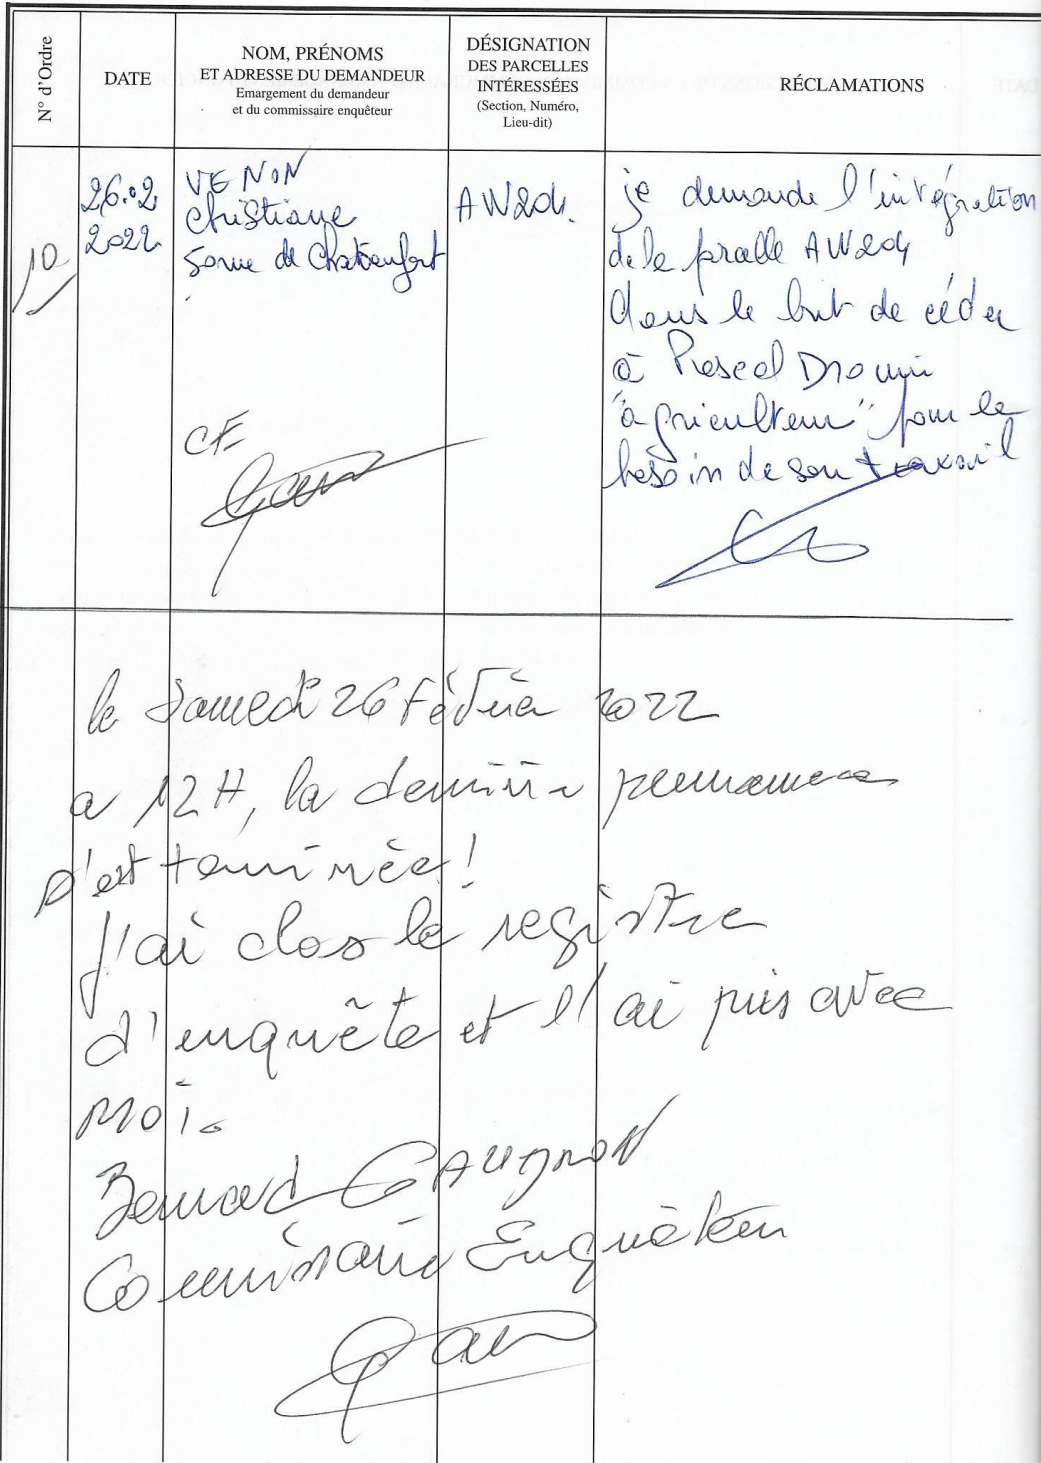 N° d'Ordre
DATE
NOM, PRÉNOMS
ET ADRESSE DU DEMANDEUR
Emargement du demandeur
et du commissaire enquêteur
DÉSIGNATION
DES PARCELLES
INTÉRESSÉES
(Section, Numéro,
Lieu-dit)
RÉCLAMATIONS
10
26.02
2022
VENON
Christiane
de
AW204.
je demande l'intégration
de la AW204
dans le but de céder
à Pascal Drouin
"agriculteur" pour le
besoin de son travail
CE
le Samedi 26 Février 2022
a 12H, la dernière permanence
s'est terminée!
J'ai clos le registre
d'enquête et l'ai pris avec
moi.
Bernard GAUDRON
Commissaire Enquêteur